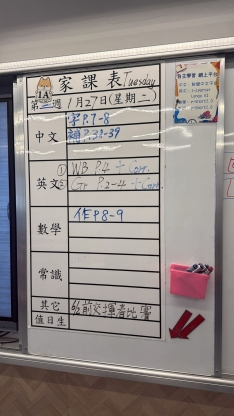 1A
家課表
Tuesday
第三週 1月27日(星期二)
中文
字P.7-8
補P.38-39
英文
① WB P.4 + Corr.
② Gr P.2-4 + Corr.
數學
作P8-9
常識
其它
值日生
自主學習 網上平台